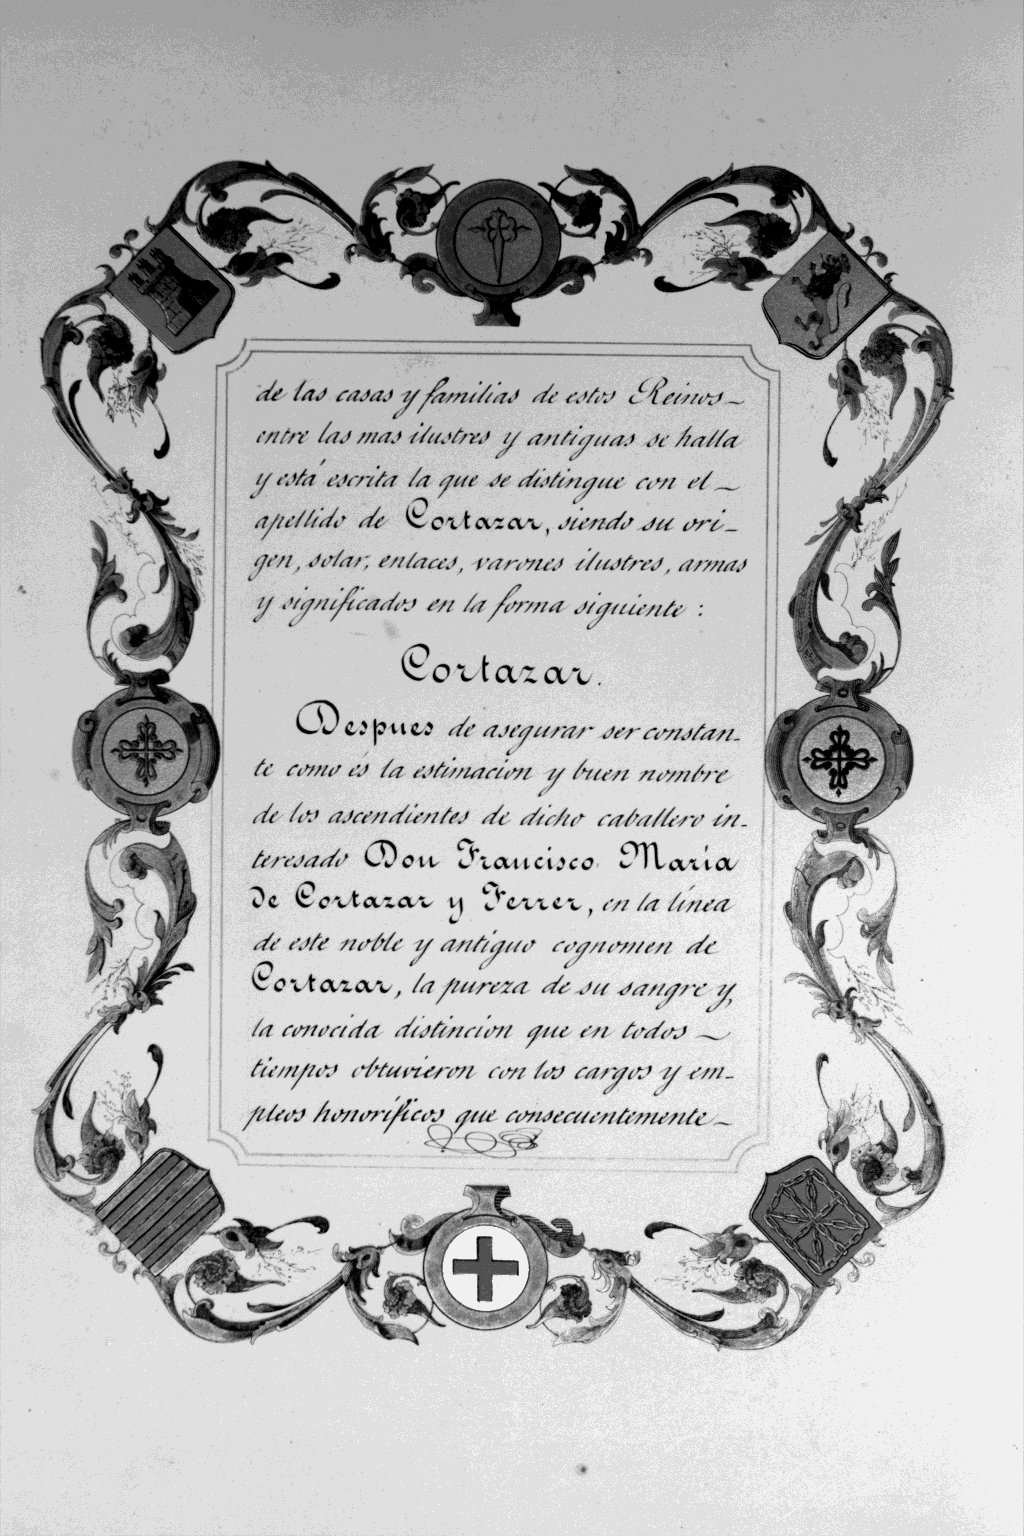 de las casas y familias de estos Reinos –
entre las mas ilustres y antiguas se halla
y está escrita la que se distingue con el –
apellido de Cortazar, siendo su ori –
gen, solar, enlaces, varones ilustres, armas
y significados en la forma siguiente :
Cortazar.
Despues de asegurar ser constan –
te como es la estimacion y buen nombre
de los ascendientes de dicho caballero in –
teresado Don Francisco María
de Cortazar y Ferrer, en la línea
de este noble y antíguo cognomen de
Cortazar, la pureza de su sangre y,
la conocida distincion que en todos –
tiempos obtuvieron con los cargos y em –
pleos honoríficos que consecuentemente –